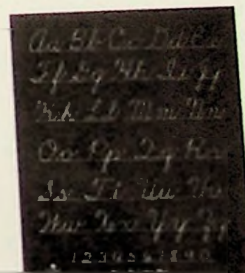 Aa Bb Cc Dd Ee
Ff Gg Hh Ii Jj
Kk Ll Mm Nn
Oo Pp Qq Rr
Ss Tt Uu Vv
Ww Xx Yy Zz
1 2 3 4 5 6 7 8 9 0